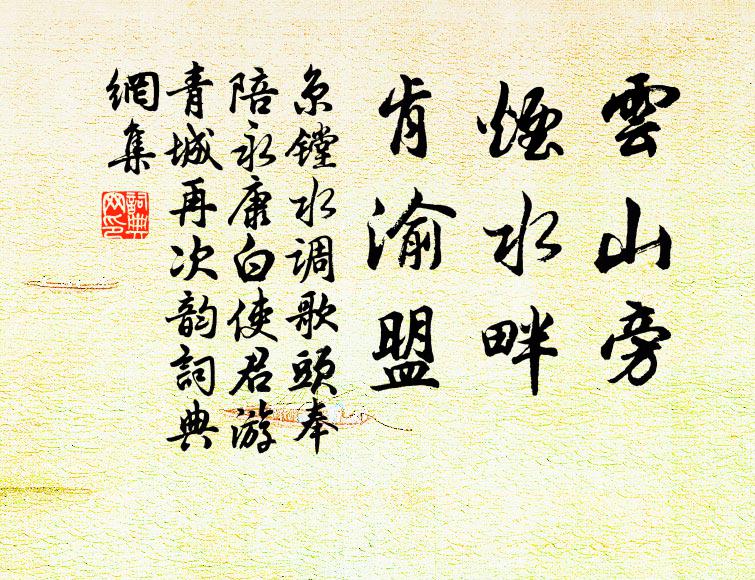 雲山旁
煙水畔
肯渝盟
京镗水调歌頭奉
陪永康白使君游
青城再次韵詞典
網集
詞典
网印